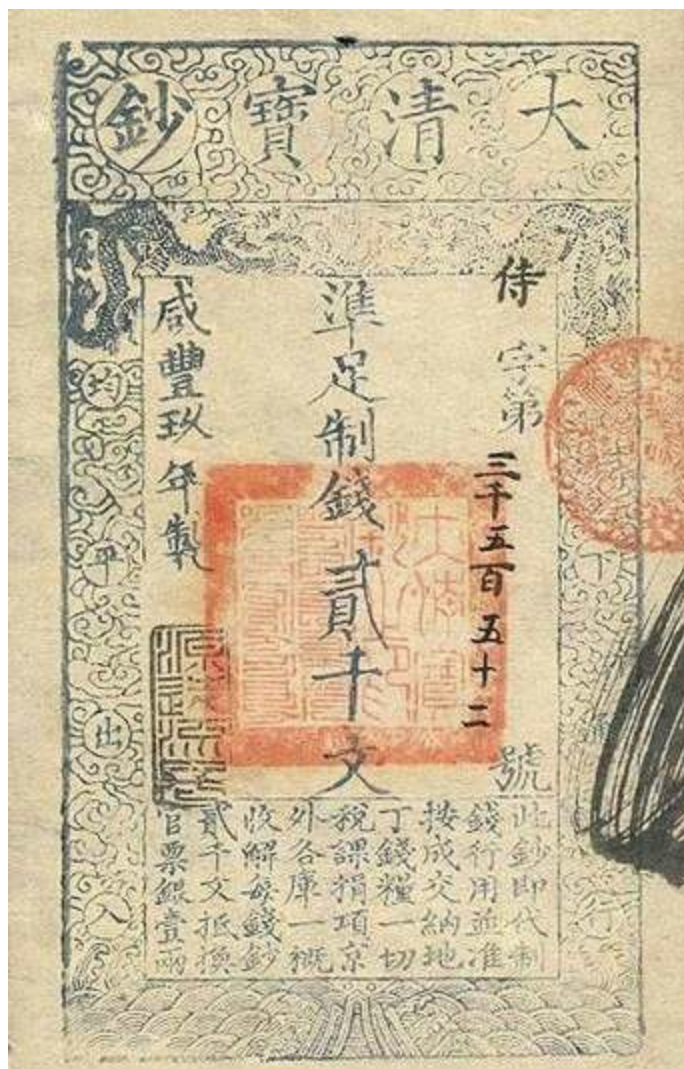 大清寶鈔
侍字第三千五百五十二號
準足制錢貳千文
咸豐玖年製
天下通行
均平出入
此鈔即代制
錢行用並准
按成交納地
丁錢糧一切
稅課捐項京
外各庫一概
收解每錢鈔
貳千文抵換
官票銀壹兩